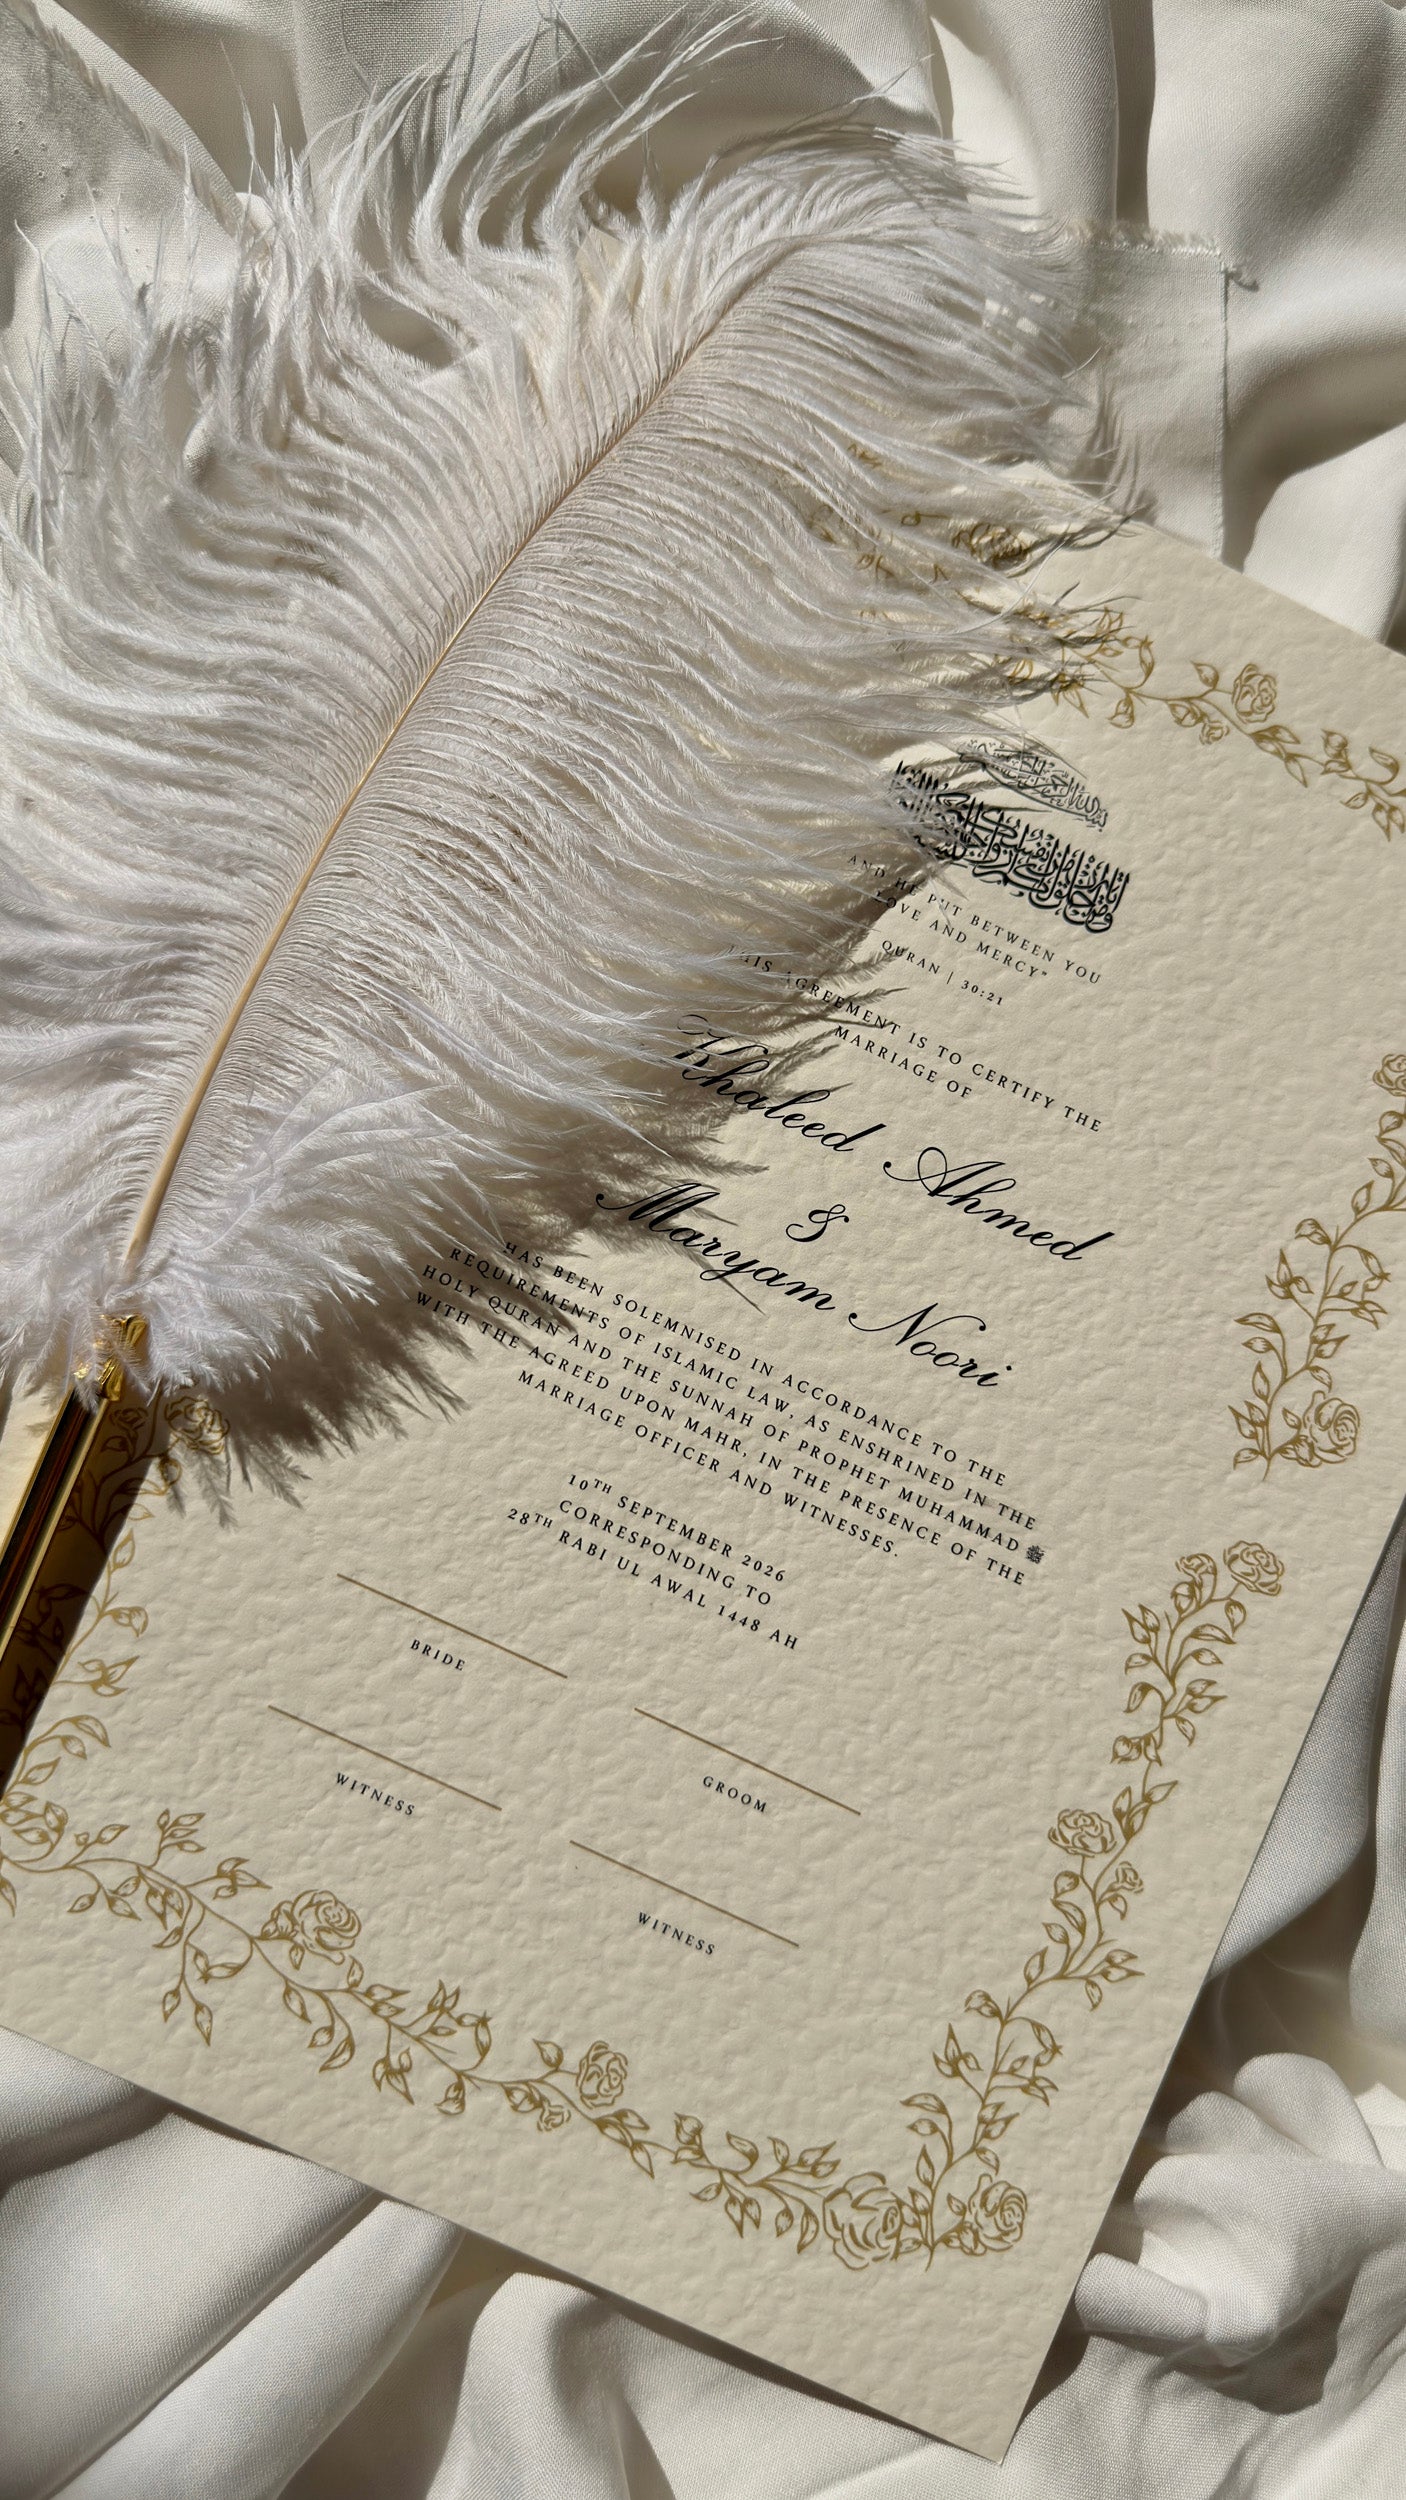 وَمِنْ آيَاتِهِ
AND HE PUT BETWEEN YOU
LOVE AND MERCY"
QURAN | 30:21
THIS AGREEMENT IS TO CERTIFY THE
MARRIAGE OF
Khaleed Ahmed
&
Maryam Noori
HAS BEEN SOLEMNISED IN ACCORDANCE TO THE
REQUIREMENTS OF ISLAMIC LAW, AS ENSHRINED IN THE
HOLY QURAN AND THE SUNNAH OF PROPHET MUHAMMAD ﷺ
WITH THE AGREED UPON MAHR, IN THE PRESENCE OF THE
MARRIAGE OFFICER AND WITNESSES.
10TH SEPTEMBER 2026
CORRESPONDING TO
28TH RABI UL AWAL 1448 AH
BRIDE
GROOM
WITNESS
WITNESS